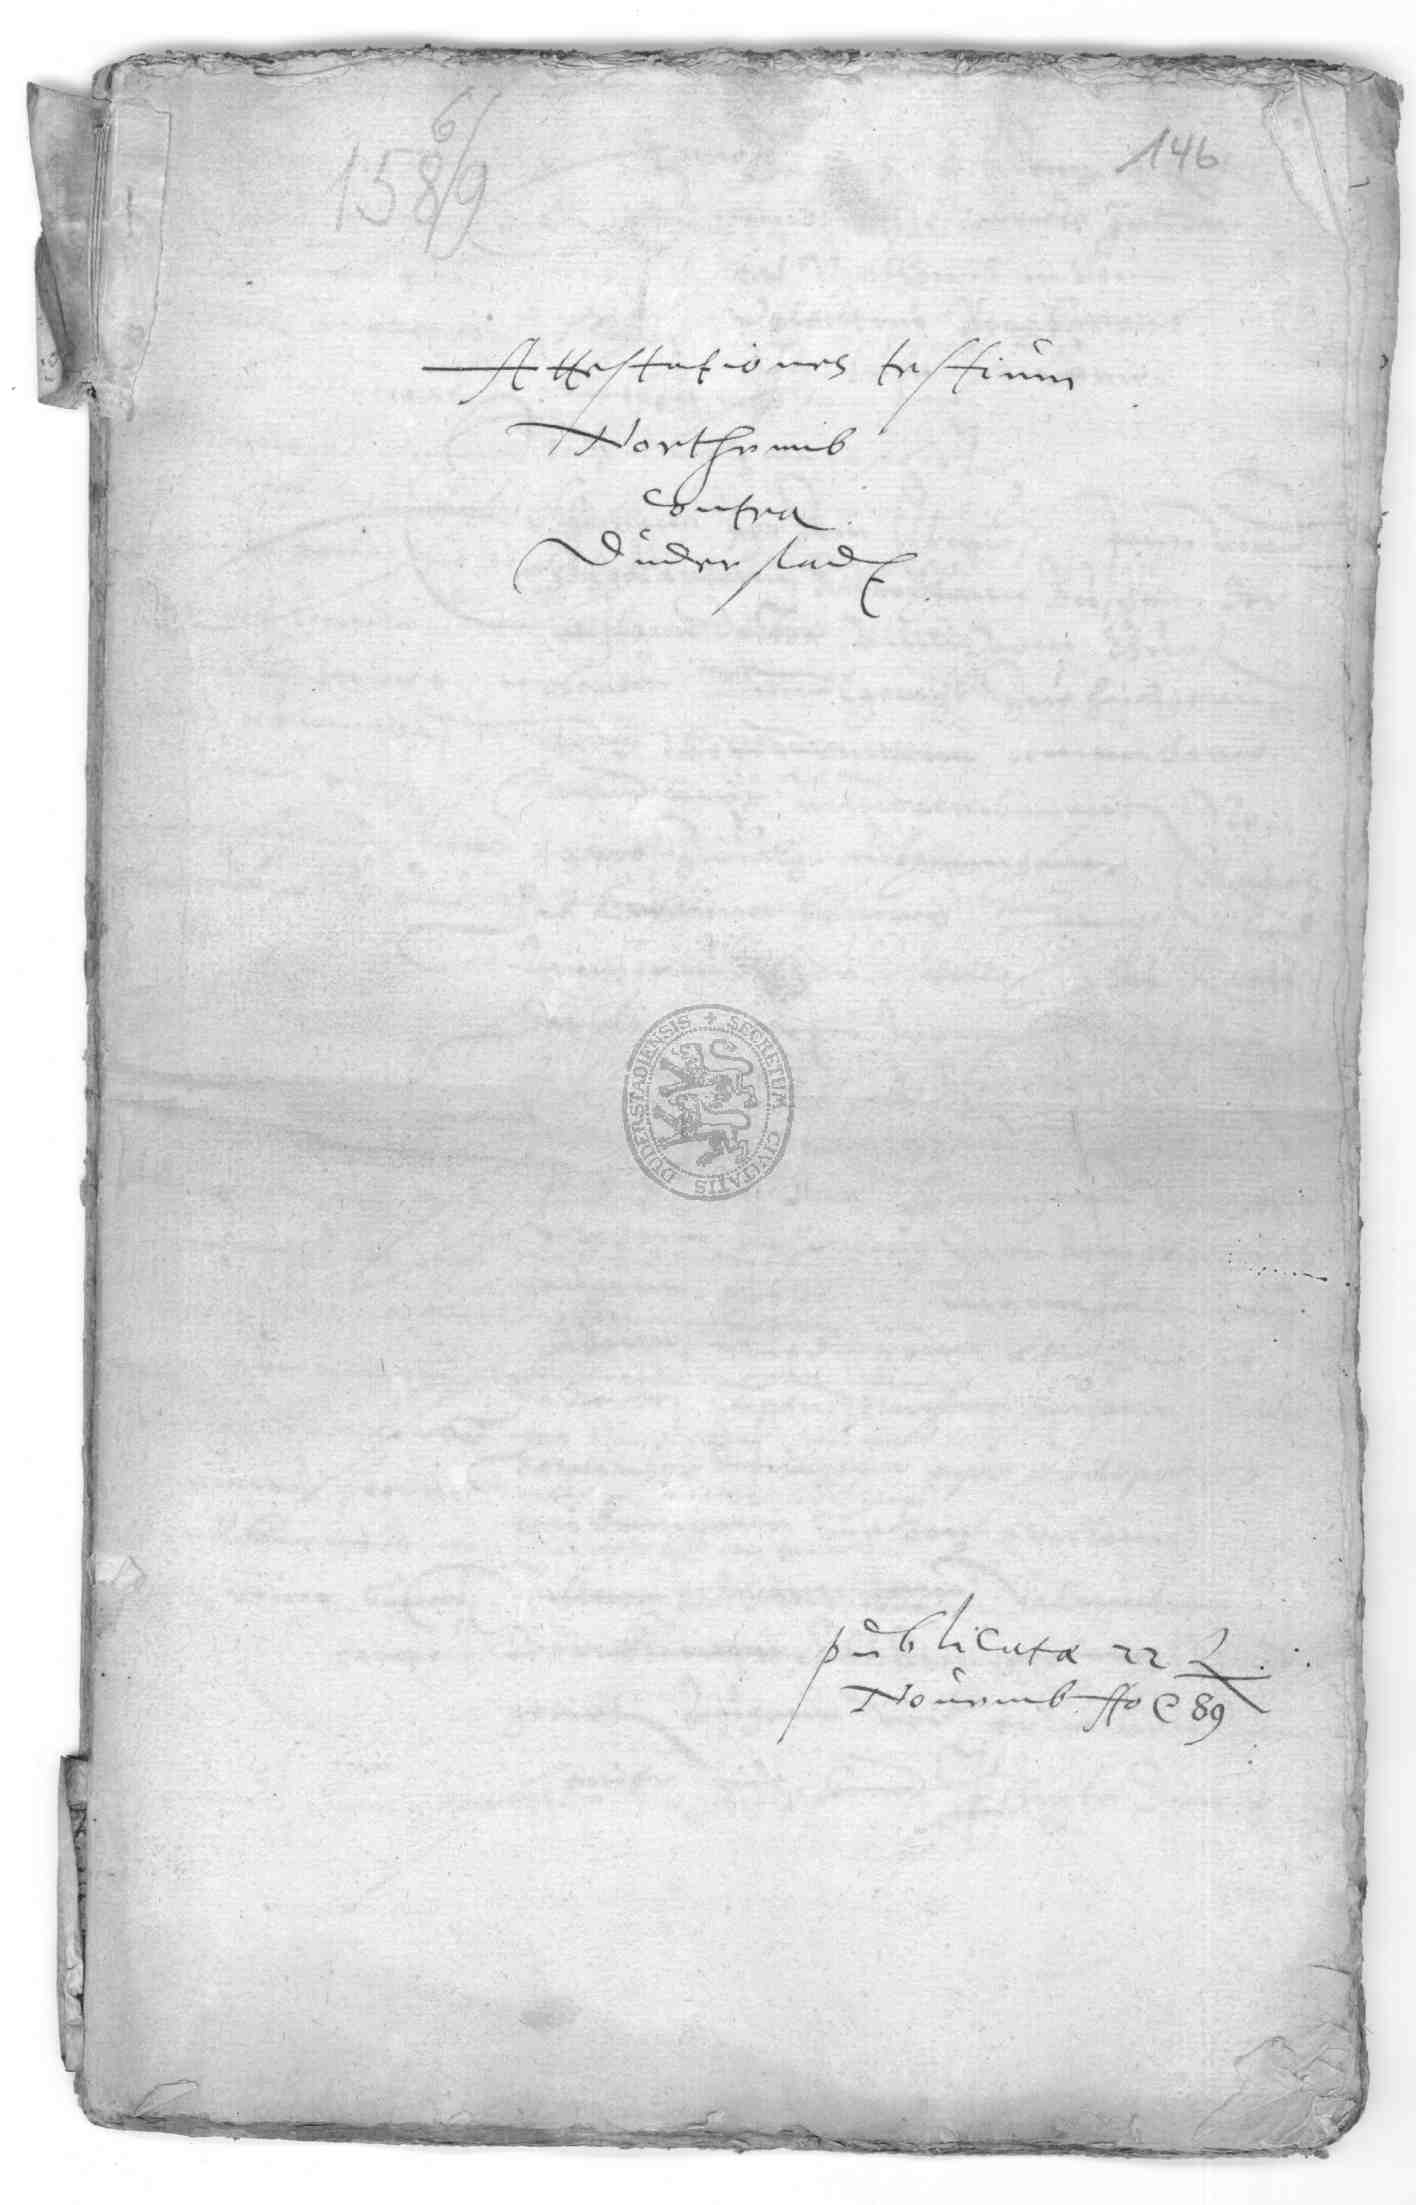 6/
158/9
146
Attestationes testium
Northeimb
contra
Duderstadt
SECRETUM CIVITATIS DUDERSTADIENSIS
publicata 22
Nouemb. Ao 89